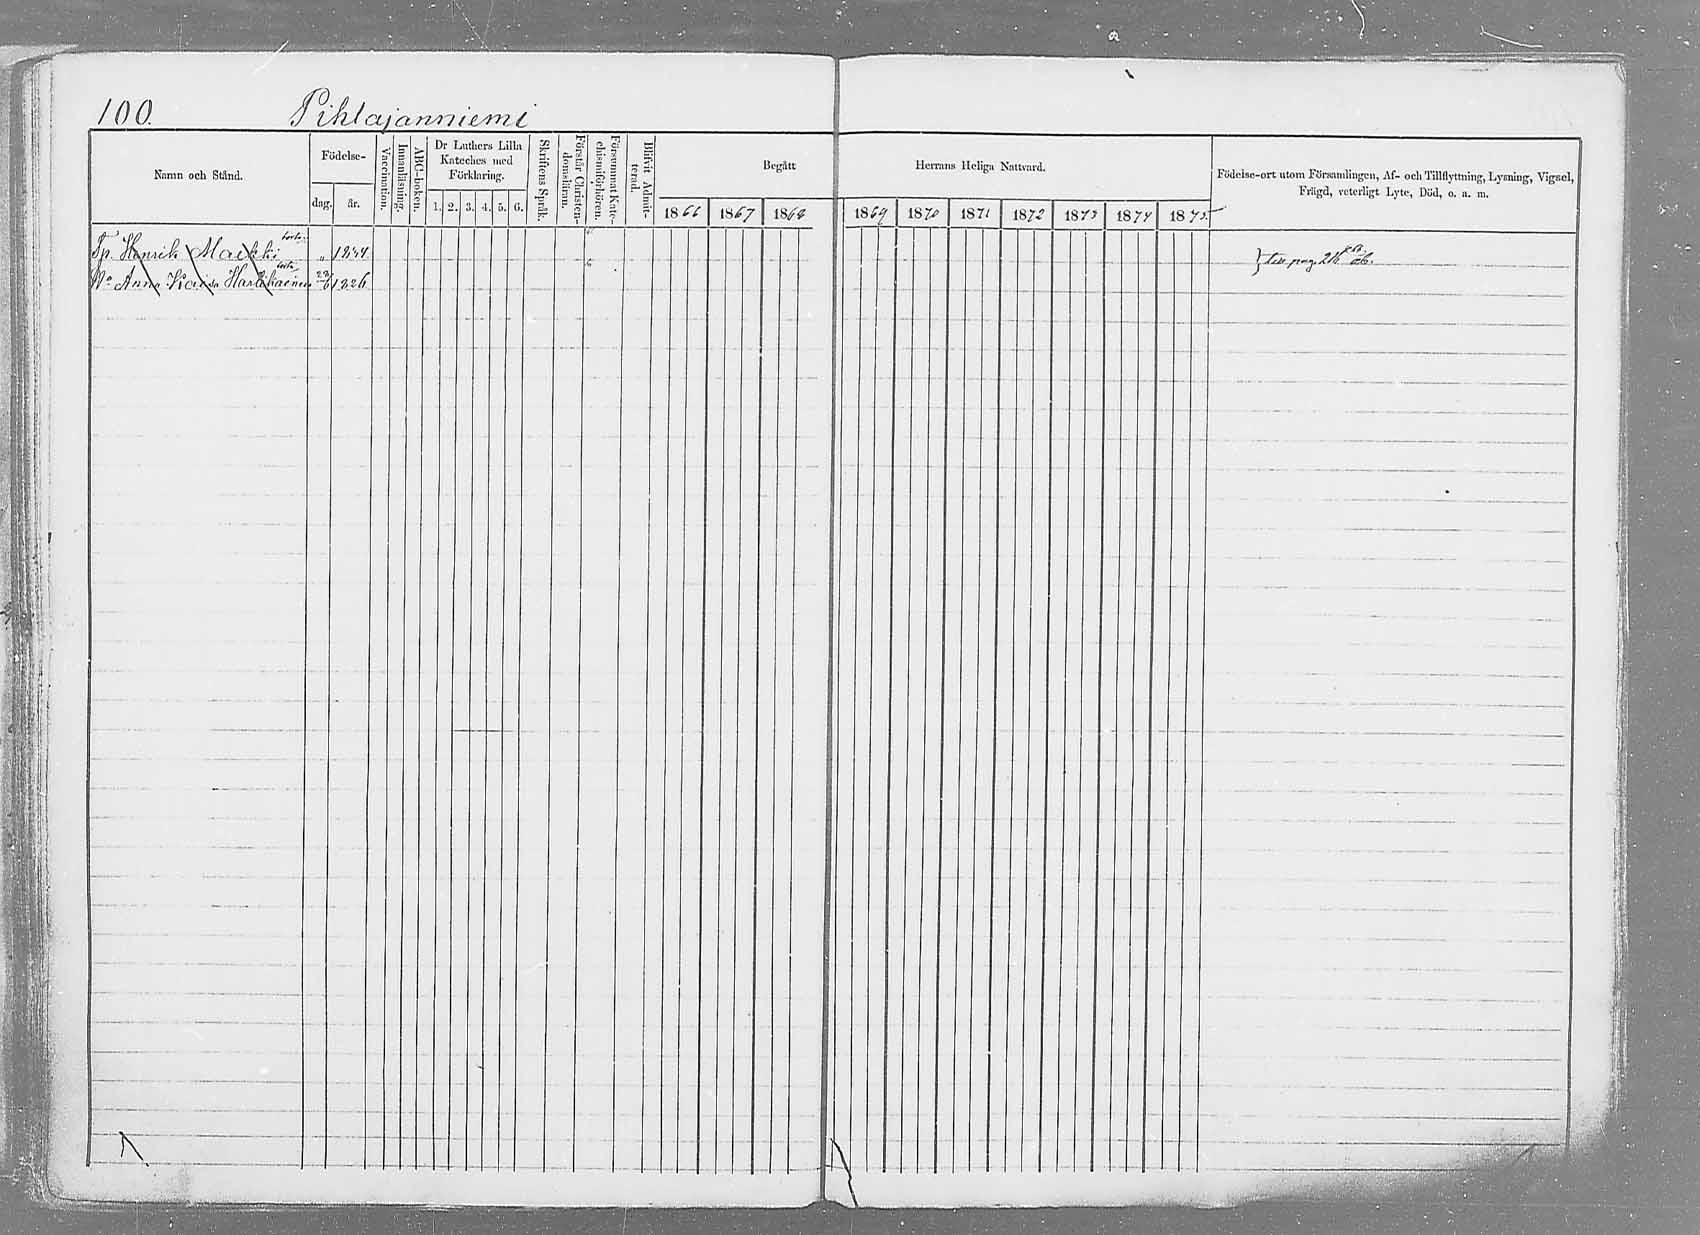 100. Pihlajanniemi
Namn och Stånd.
Födelse-
dag.
år.
Vaccination.
Innanläsning.
ABC-boken.
Dr Luthers Lilla
Kateches med
Förklaring.
1. 2. 3. 4. 5. 6.
Skriftens Språk.
Förstår Christen-
domsläran.
Försummat Kate-
chismiförhören.
Blifvit Admit-
terad.
Begått
Herrans Heliga Nattvard.
1866 1867 1868 1869 1870 1871 1872 1873 1874 1875
Födelse-ort utom Församlingen, Af- och Tillflyttning, Lysning, Vigsel,
Frägd, veterligt Lyte, Död, o. a. m.
borta
Tp. Henrik
borta
Anna 1826
till pag.